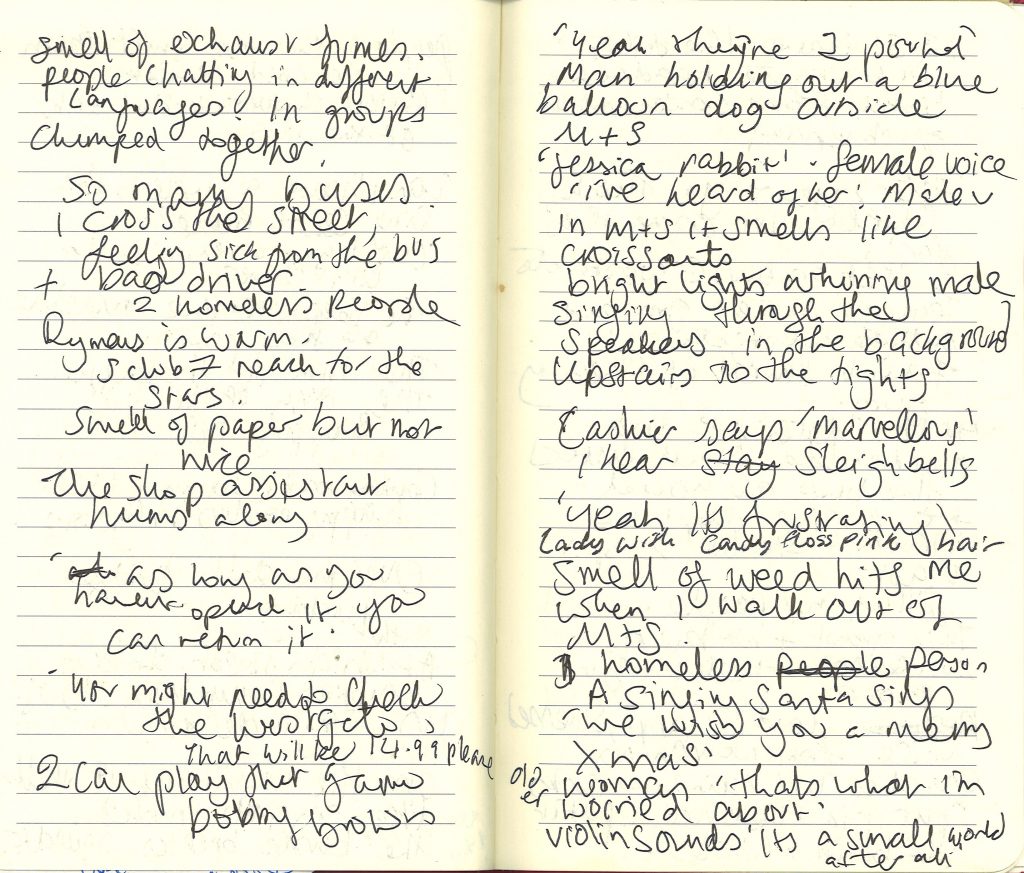 smell of exhaust fumes.
people chatting in different
languages. In groups
clumped together.
so many buses.
I cross the street,
feeling sick from the bus
+ bad driver.
2 homeless people
Rymans is warm.
s club 7 reach for the
stars.
Smell of paper but not
nice
The shop assistant
hums along
'as long as you
havent opened it you
can return it'
'You might need to check
the westgate'
That will be 14.99 please
2 can play that game
bobby brown
'Yeah they're 1 pound'
Man holding out a blue
balloon dog outside
M+S
'Jessica rabbit' - female voice
'i've heard of her' Male v
In M+S it smells like
croissants
bright lights whining male
singing through the
speakers in the background
Upstairs to the tights
Cashier says 'marvellous'
I hear stay sleigh bells
'Yeah its frustrating'
Lady with candy floss pink hair
Smell of weed hits me
when I walk out of
M+S.
homeless people person
A singing santa sings
'we wish you a merry
Xmas'
older woman 'thats what im
worried about'
violin sounds 'Its a small world
after all'